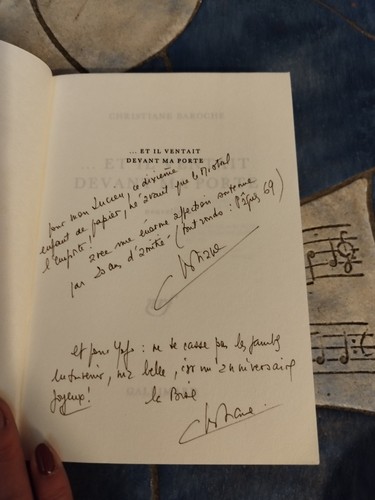 CHRISTIANE BAROCHE
... ET IL VENTAIT
DEVANT MA PORTE
pour mon Lucien, ce dixième
enfant de papier, né avant que le Mistral
l'emporte!
avec une énorme affection
par 20 ans d'amitié! (Pâques 69)
Christiane
et pour : ne te casse pas les jambes
ma belle, anniversaire
joyeux! la Bise
Christiane.